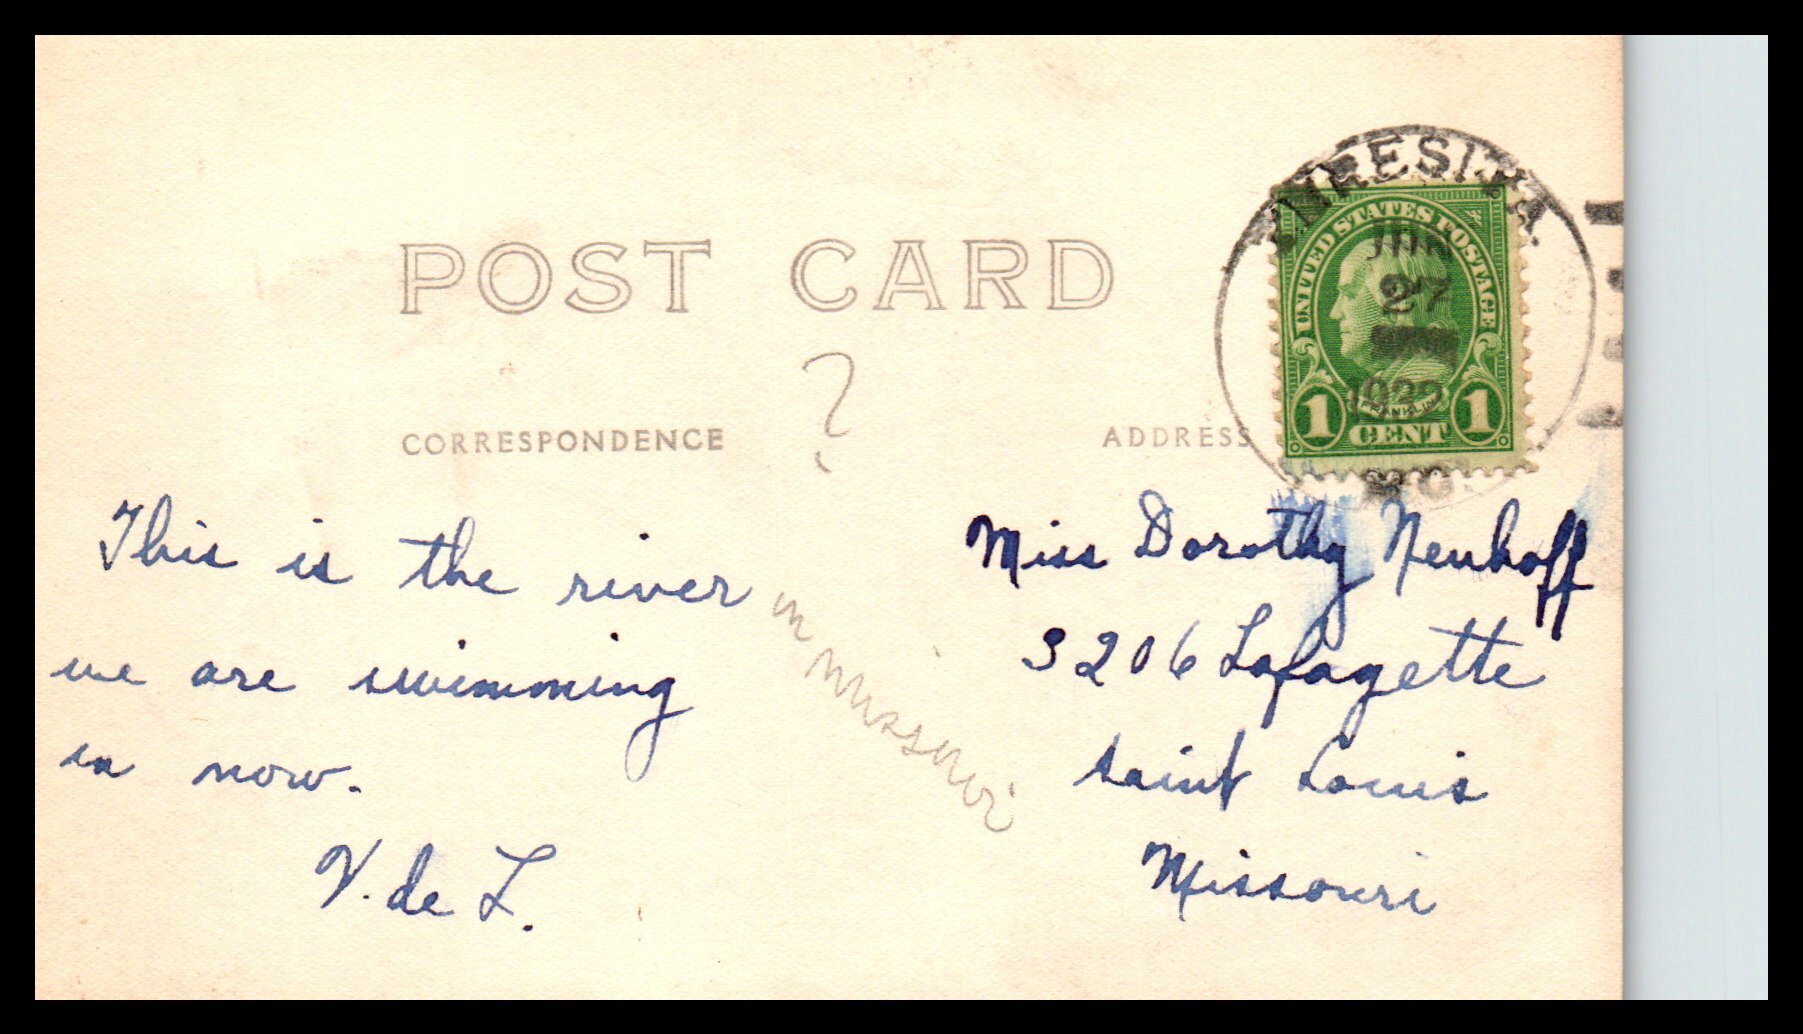 POST CARD
?
CORRESPONDENCE
ADDRESS
JUN
27
1932
MO.
UNITED STATES POSTAGE
FRANKLIN
1 CENT 1
This is the river
we are swimming
in now.
V. de L.
in missouri
Miss Dorothy Neuhoff
3206 Lafayette
Saint Louis
Missouri